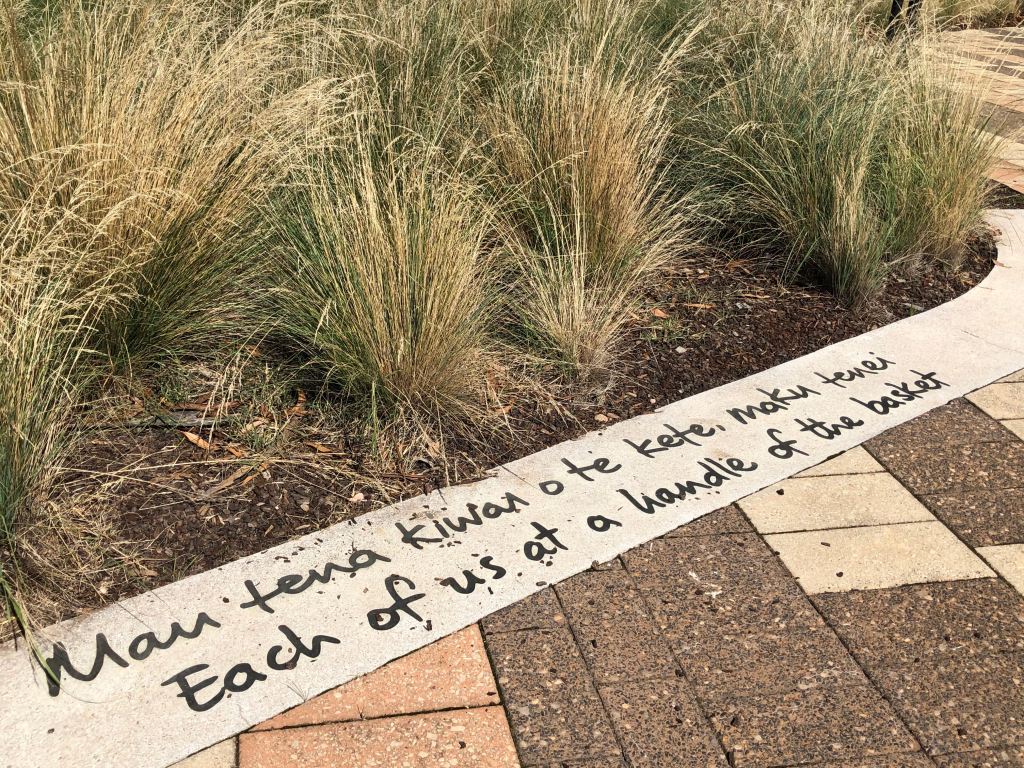 Mau tena kiwai o te kete, maku tenei
Each of us at a handle of the basket